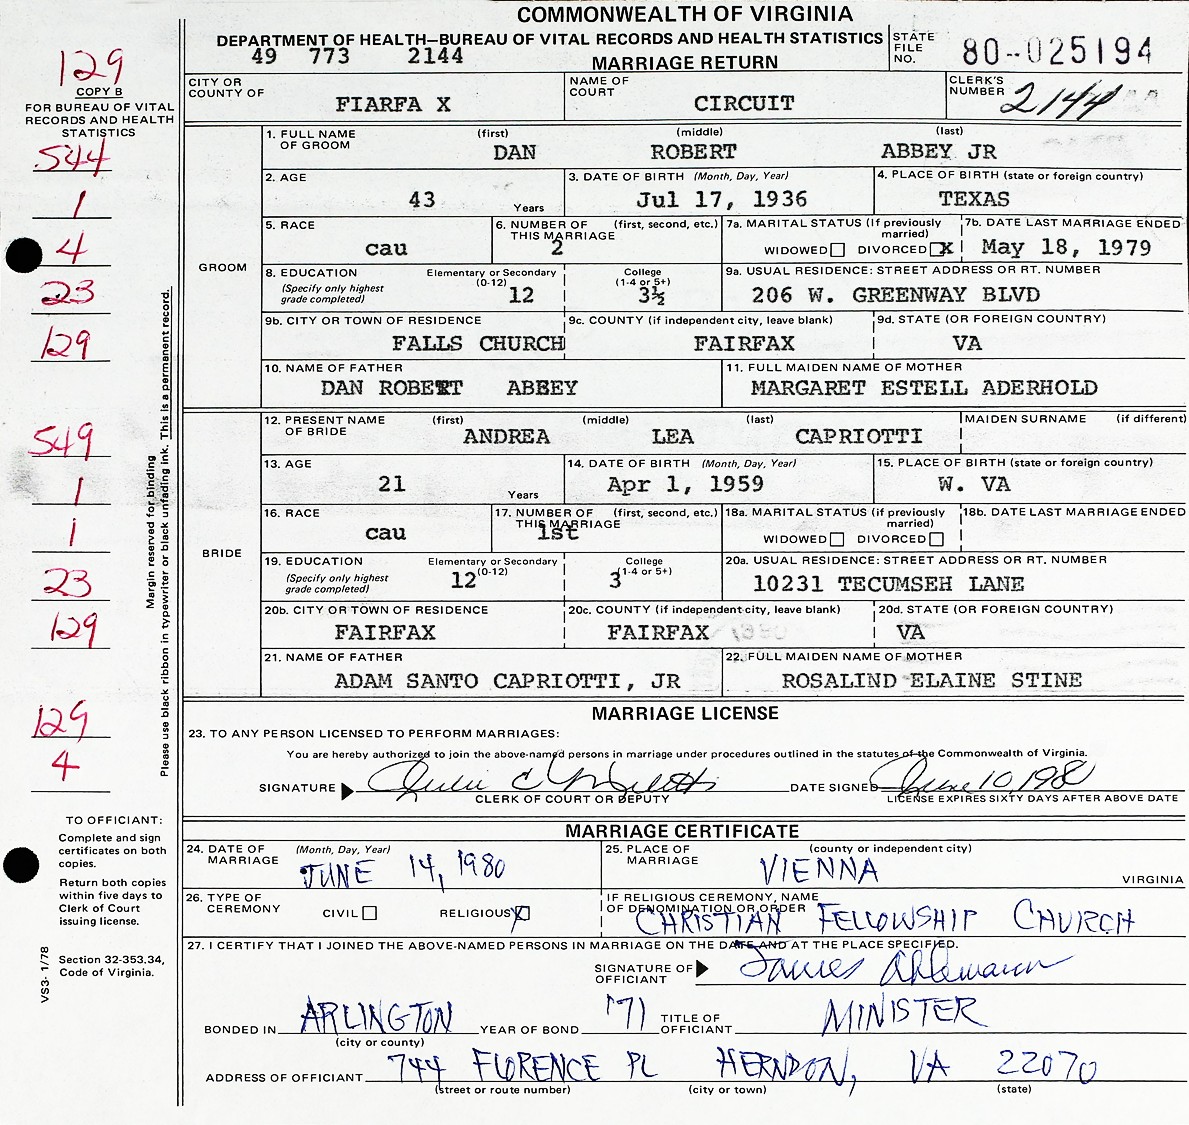 COMMONWEALTH OF VIRGINIA
DEPARTMENT OF HEALTH—BUREAU OF VITAL RECORDS AND HEALTH STATISTICS
49 773 2144 MARRIAGE RETURN
STATE FILE NO. 80-025194
129
COPY B
FOR BUREAU OF VITAL
RECORDS AND HEALTH
STATISTICS
CITY OR COUNTY OF FIARFA X
NAME OF COURT CIRCUIT
CLERK'S NUMBER 2144
544
1
4
23
129
549
1
1
23
129
129
4
Margin reserved for binding
Please use black ribbon in typewriter or black unfading ink. This is a permanent record.
GROOM
1. FULL NAME OF GROOM (first) (middle) (last)
DAN ROBERT ABBEY JR
2. AGE 43 Years
3. DATE OF BIRTH (Month, Day, Year) Jul 17, 1936
4. PLACE OF BIRTH (state or foreign country) TEXAS
5. RACE cau
6. NUMBER OF THIS MARRIAGE (first, second, etc.) 2
7a. MARITAL STATUS (if previously married) WIDOWED DIVORCED X
7b. DATE LAST MARRIAGE ENDED May 18, 1979
8. EDUCATION (Specify only highest grade completed) Elementary or Secondary (0-12) 12 College (1-4 or 5+) 3½
9a. USUAL RESIDENCE: STREET ADDRESS OR RT. NUMBER
206 W. GREENWAY BLVD
9b. CITY OR TOWN OF RESIDENCE FALLS CHURCH
9c. COUNTY (if independent city, leave blank) FAIRFAX
9d. STATE (OR FOREIGN COUNTRY) VA
10. NAME OF FATHER DAN ROBERT ABBEY
11. FULL MAIDEN NAME OF MOTHER MARGARET ESTELL ADERHOLD
BRIDE
12. PRESENT NAME OF BRIDE (first) (middle) (last) MAIDEN SURNAME (if different)
ANDREA LEA CAPRIOTTI
13. AGE 21 Years
14. DATE OF BIRTH (Month, Day, Year) Apr 1, 1959
15. PLACE OF BIRTH (state or foreign country) W. VA
16. RACE cau
17. NUMBER OF THIS MARRIAGE (first, second, etc.) 1st
18a. MARITAL STATUS (if previously married) WIDOWED DIVORCED
18b. DATE LAST MARRIAGE ENDED
19. EDUCATION (Specify only highest grade completed) Elementary or Secondary (0-12) 12 College (1-4 or 5+) 3
20a. USUAL RESIDENCE: STREET ADDRESS OR RT. NUMBER
10231 TECUMSEH LANE
20b. CITY OR TOWN OF RESIDENCE FAIRFAX
20c. COUNTY (if independent city, leave blank) FAIRFAX
20d. STATE (OR FOREIGN COUNTRY) VA
21. NAME OF FATHER ADAM SANTO CAPRIOTTI, JR
22. FULL MAIDEN NAME OF MOTHER ROSALIND ELAINE STINE
MARRIAGE LICENSE
23. TO ANY PERSON LICENSED TO PERFORM MARRIAGES:
You are hereby authorized to join the above-named persons in marriage under procedures outlined in the statutes of the Commonwealth of Virginia.
SIGNATURE
CLERK OF COURT OR DEPUTY
DATE SIGNED June 10, 1980
LICENSE EXPIRES SIXTY DAYS AFTER ABOVE DATE
MARRIAGE CERTIFICATE
24. DATE OF MARRIAGE (Month, Day, Year) JUNE 14, 1980
25. PLACE OF MARRIAGE (county or independent city) VIENNA VIRGINIA
26. TYPE OF CEREMONY CIVIL RELIGIOUS X
IF RELIGIOUS CEREMONY, NAME OF DENOMINATION OR ORDER CHRISTIAN FELLOWSHIP CHURCH
27. I CERTIFY THAT I JOINED THE ABOVE-NAMED PERSONS IN MARRIAGE ON THE DATE AND AT THE PLACE SPECIFIED.
SIGNATURE OF OFFICIANT James Ahlemann
BONDED IN ARLINGTON (city or county)
YEAR OF BOND '71
TITLE OF OFFICIANT MINISTER
ADDRESS OF OFFICIANT 744 FLORENCE PL HERNDON, VA 22070
(street or route number) (city or town) (state)
TO OFFICIANT:
Complete and sign
certificates on both
copies.
Return both copies
within five days to
Clerk of Court
issuing license.
Section 32-353.34,
Code of Virginia.
VS3- 1/78